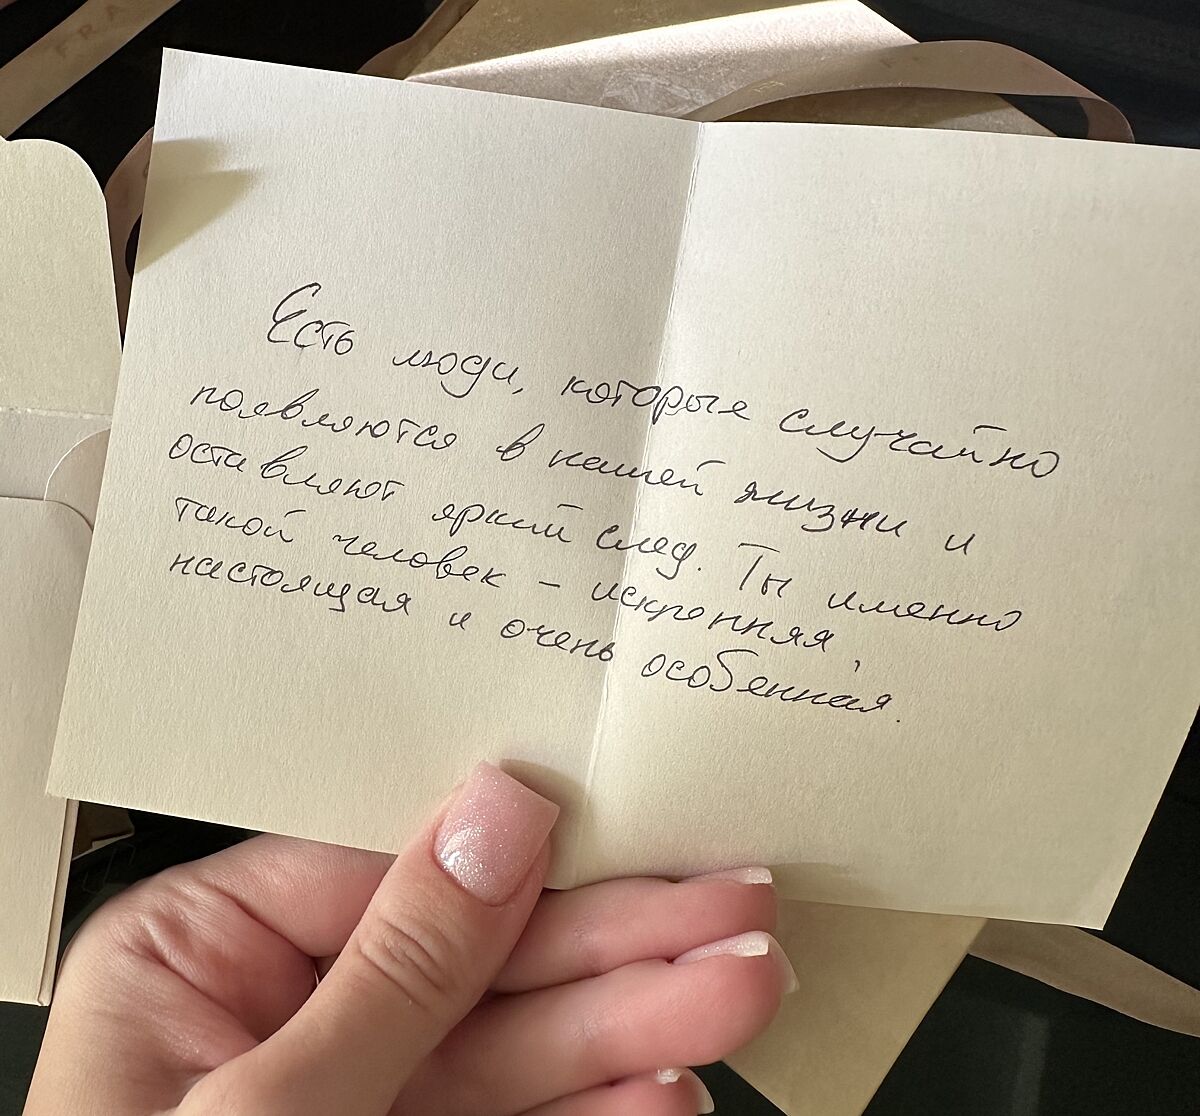 Есть люди, которые случайно
появляются в нашей жизни и
оставляют яркий след. Ты именно
такой человек – искренняя,
настоящая и очень особенная.